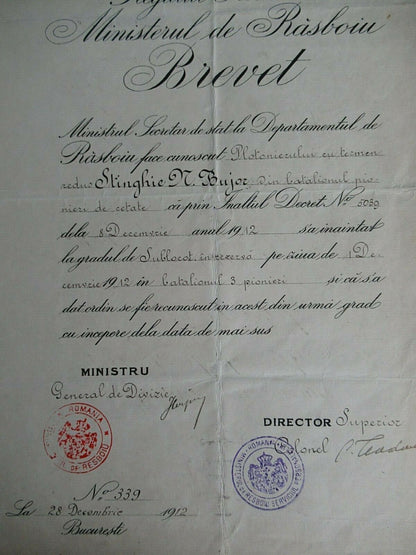 Regatul
Ministerul de Răsboiu
Brevet
Ministrul Secretar de stat la Departamentul de
Răsboiu face cunoscut Plotonierului cu termen
redus Stinghie N. Bujor din batalionul pio
nieri de cetate că prin Inaltul Decret No 5059
dela 8 Decemvrie anul 1912 s'a inaintat
la gradul de Sublocot. in rezervă pe ziua de 1 De-
cemvrie 1912 in batalionul 3 pionieri si că s'a
dat ordin se fie recunoscut in acest din urmă grad
cu incepere dela data de mai sus
MINISTRU
General de Divizie
DIRECTOR Superior
Colonel
ROMANIA
MIN. DE RESBOIU
ROMANIA
MINISTERUL DE RESBOIU SERVICIUL
No 339
La 28 Decembrie 1912
Bucuresti